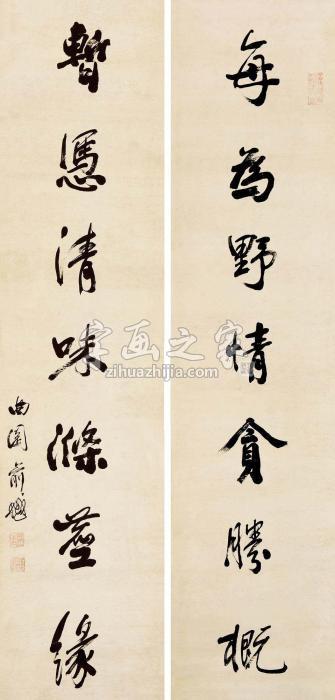 每為野情貪勝概
暫憑清味滌塵緣
曲園俞樾
字画之家
zihuazhijia.com